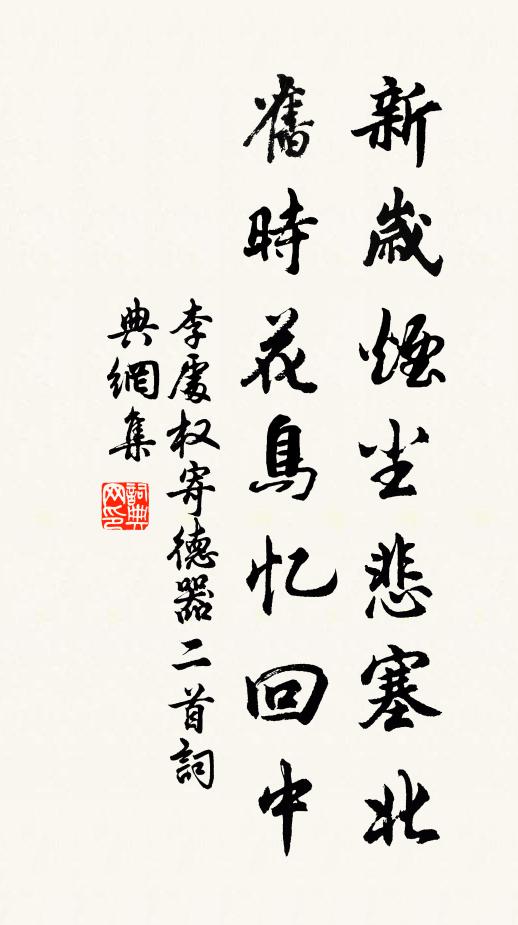 新歲煙尘悲塞北
舊時花鳥忆回中
李處权寄德器二首詞
典網集
詞典
网印